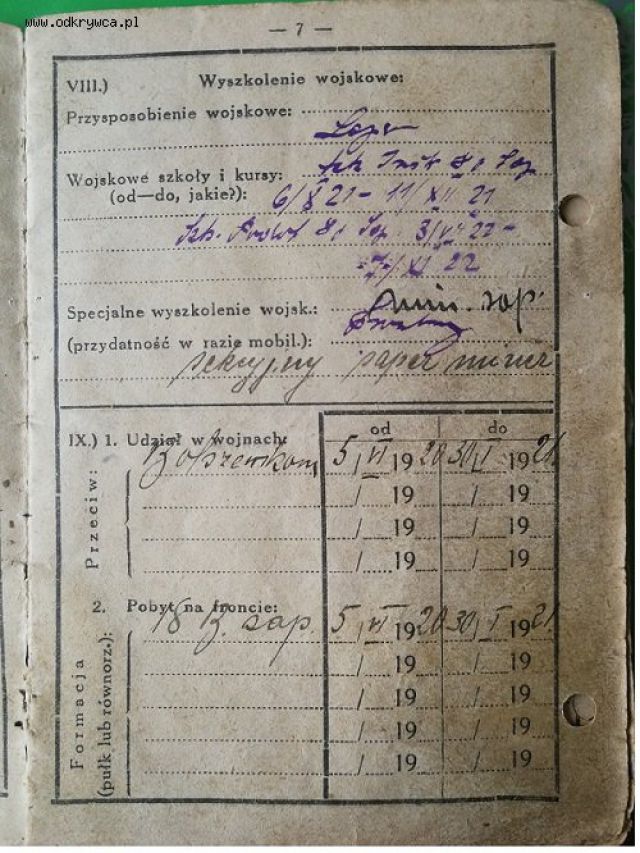 www.odkrywca.pl
— 7 —
VIII.) Wyszkolenie wojskowe:
Przysposobienie wojskowe:
Wojskowe szkoły i kursy: Szk. Inst 8 p Sap
(od—do, jakie?): 6/X 21 - 11/XII 21
Szk. 8 p Sap. 3/VII 22 -
-7-/XI 22
Specjalne wyszkolenie wojsk.: min. sap.
(przydatność w razie mobil.):
sekcyjny saper miner
IX.) 1. Udział w wojnach: od do
Przeciw: Bolszewikom 5/VI 1920 30/I 1921
/ 19 / 19
/ 19 / 19
/ 19 / 19
2. Pobyt na froncie:
Formacja (pułk lub równorz.): 18 B. sap. 5/VI 1920 30/I 1921
/ 19 / 19
/ 19 / 19
/ 19 / 19
/ 19 / 19